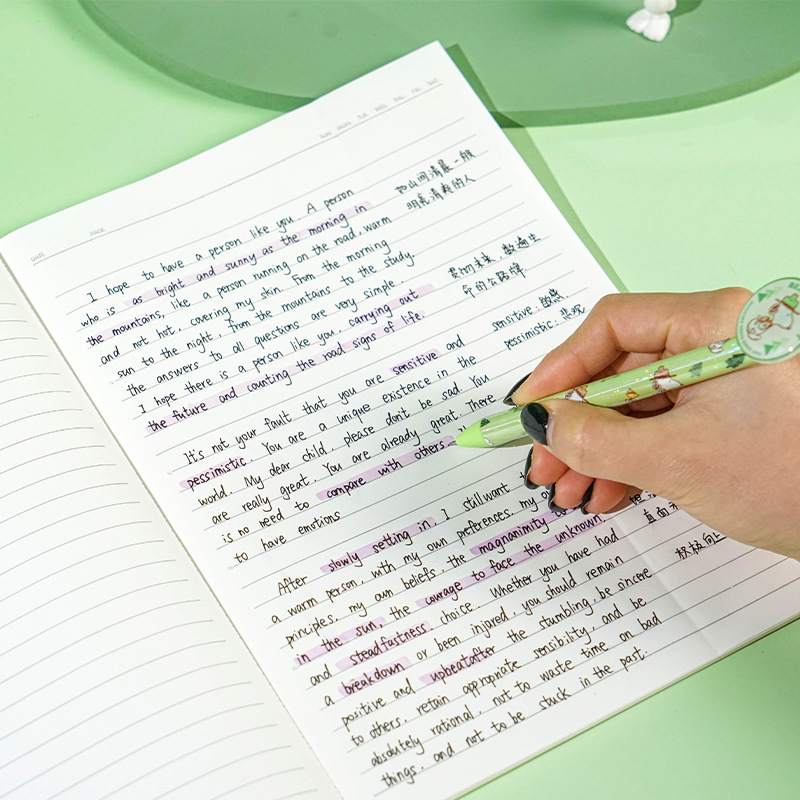 SUN MON TUE WED THU FRI SAT
DATE
PAGE
I hope to have a person like you. A person
who is as bright and sunny as the morning in
the mountains, like a person running on the road, warm
and not hot, covering my skin. From the morning
sun to the night, from the mountains to the study.
the answers to all questions are very simple.
I hope there is a person like you, carrying out
the future and counting the road signs of life.
如山间清晨一般
明亮清爽的人
贯彻未来,数遍生
命的公路牌
It's not your fault that you are sensitive and
pessimistic. You are a unique existence in the
world. My dear child, please don't be sad. You
are really great. You are already great. There
is no need to compare with others
to have emotions
sensitive: 敏感
pessimistic: 悲观
After slowly setting in, I still want
a warm person, with my own preferences, my
principles, my own beliefs, the magnanimity
in the sun, the courage to face the unknown
and steadfastness choice. Whether you have had
a breakdown or been injured, you should remain
positive and upbeatafter the stumbling, be sincere
to others, retain appropriate sensibility, and be
absolutely rational, not to waste time on bad
things, and not to be stuck in the past.
直面
积极向上